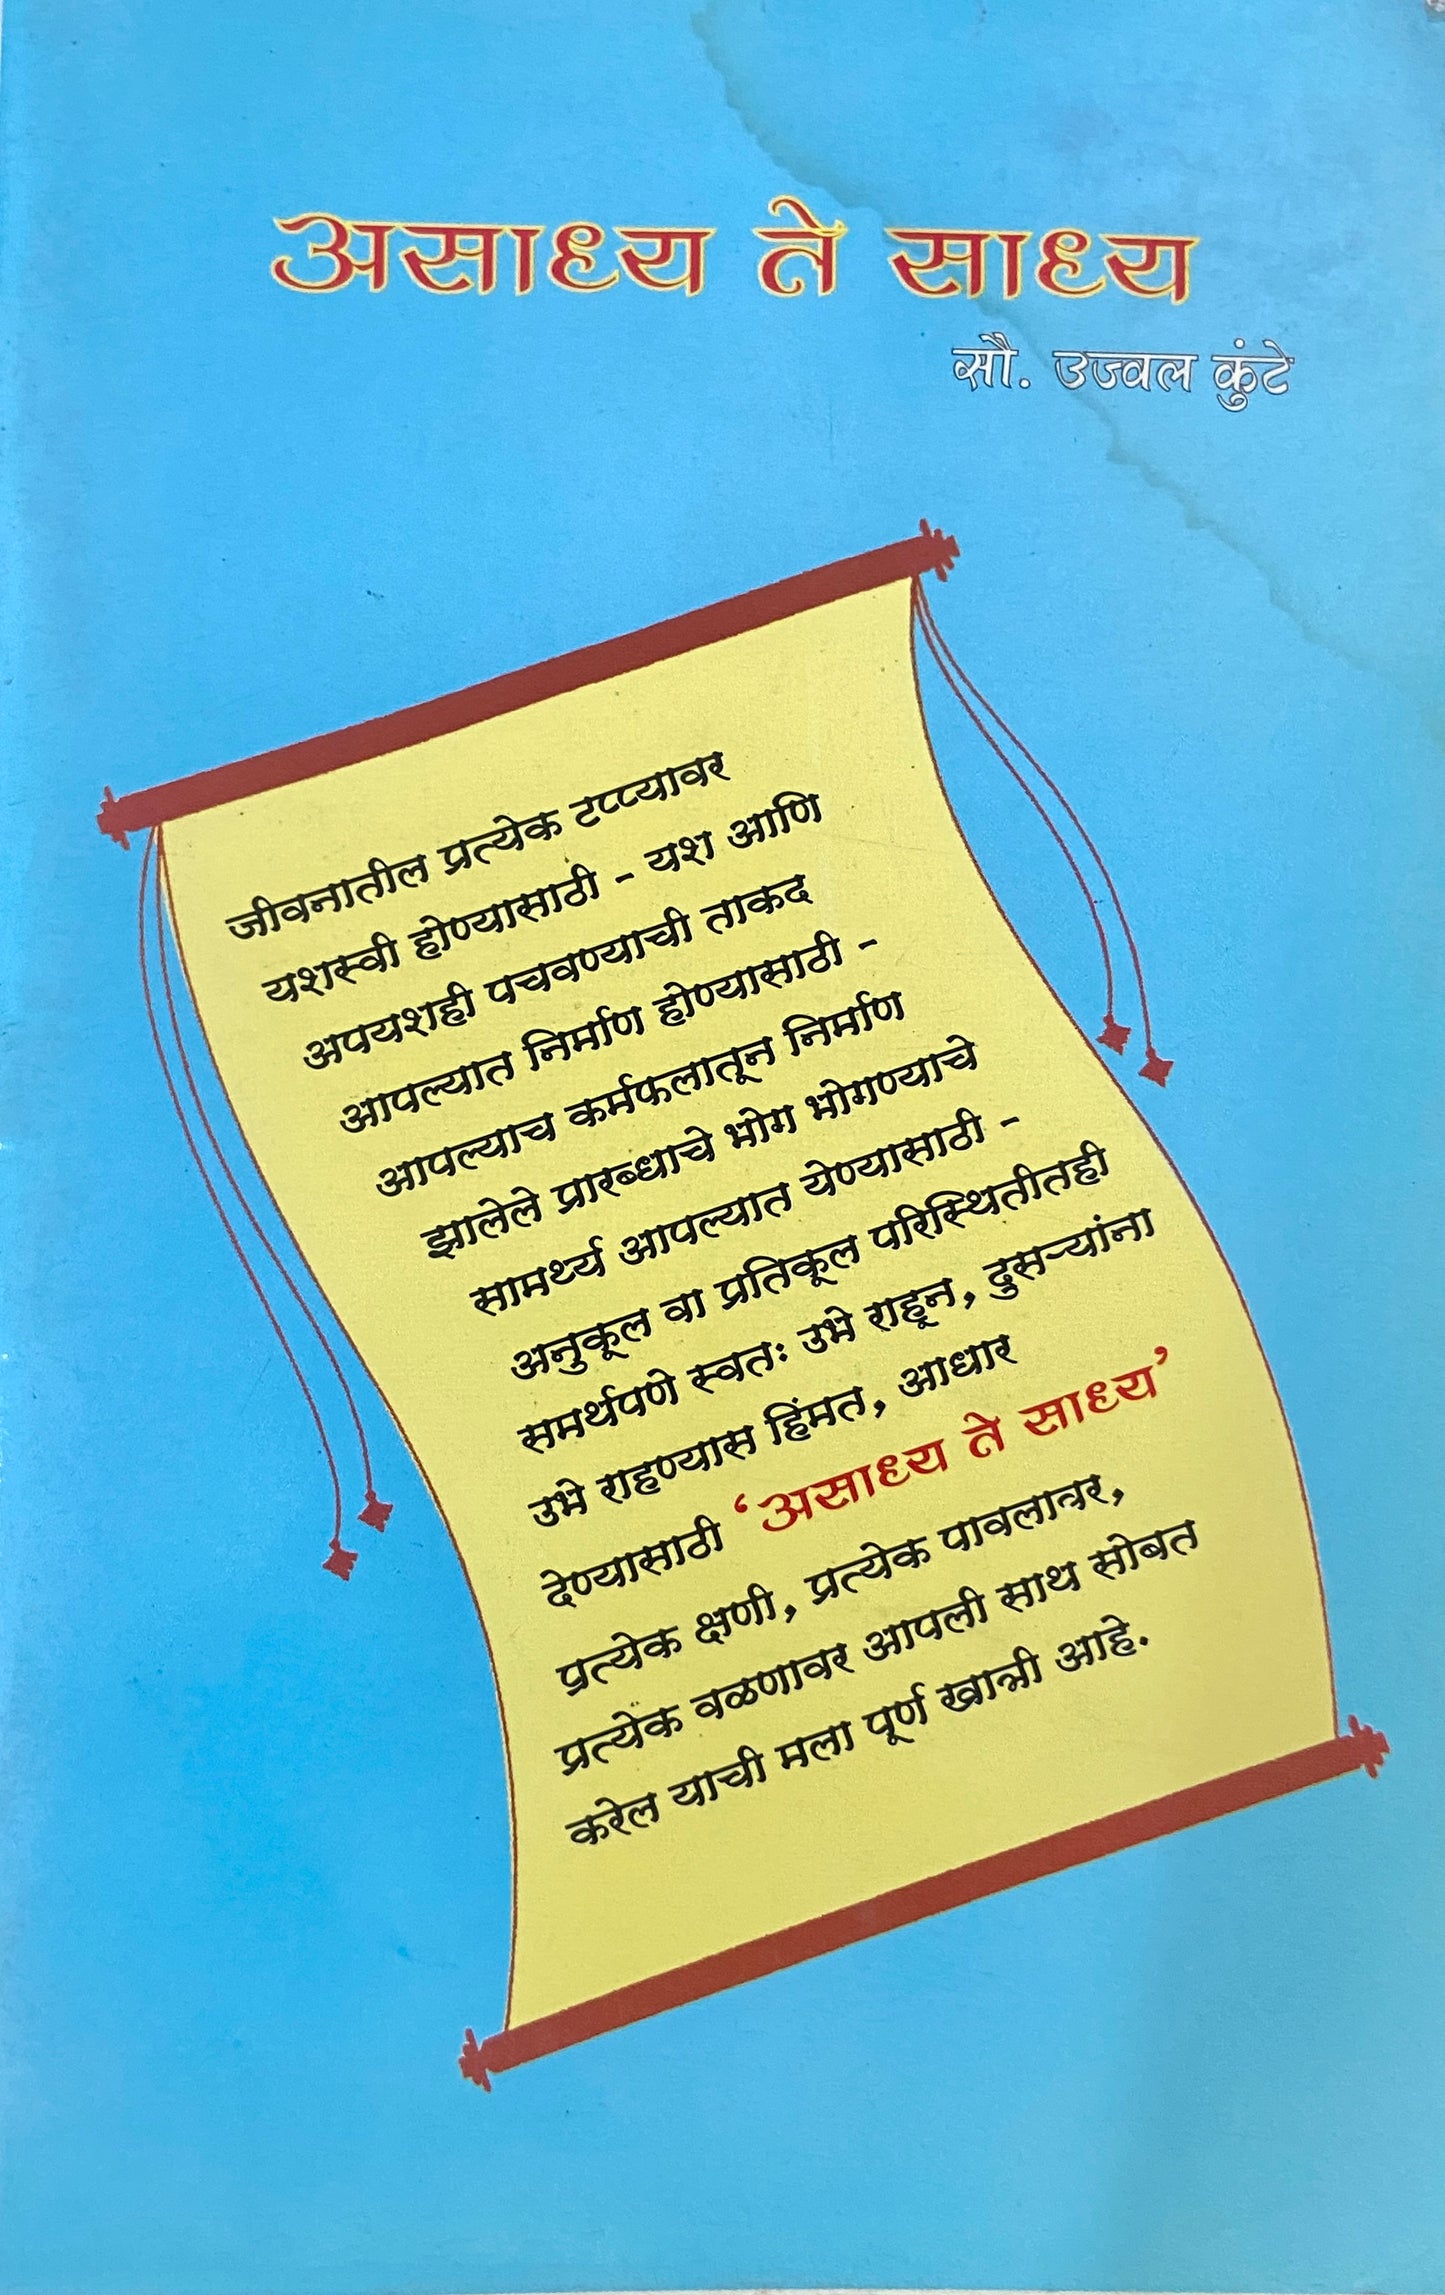 असाध्य ते साध्य
सौ. उज्वल कुंटे
जीवनातील प्रत्येक टप्प्यावर
यशस्वी होण्यासाठी - यश आणि
अपयशही पचवण्याची ताकद
आपल्यात निर्माण होण्यासाठी -
आपल्याच कर्मफलातून निर्माण
झालेले प्रारब्धाचे भोग भोगण्याचे
सामर्थ्य आपल्यात येण्यासाठी -
अनुकूल वा प्रतिकूल परिस्थितीतही
समर्थपणे स्वतः उभे राहून, दुसऱ्यांना
उभे राहण्यास हिंमत, आधार
देण्यासाठी ‘असाध्य ते साध्य’
प्रत्येक क्षणी, प्रत्येक पावलावर,
प्रत्येक वळणावर आपली साथ सोबत
करेल याची मला पूर्ण खात्री आहे.